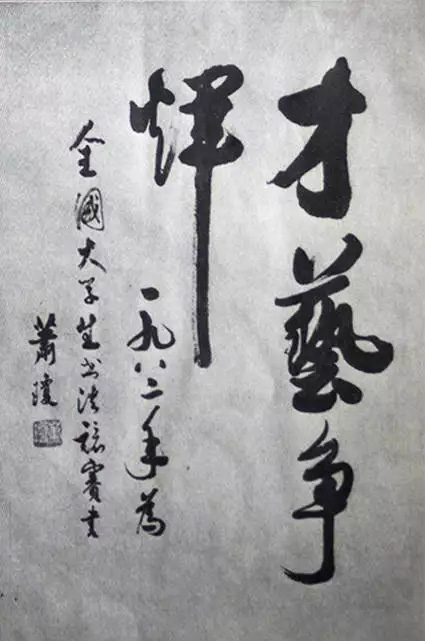 才藝争
煇
一九八二年為
全國大学生书法競賽书
蕭瓊